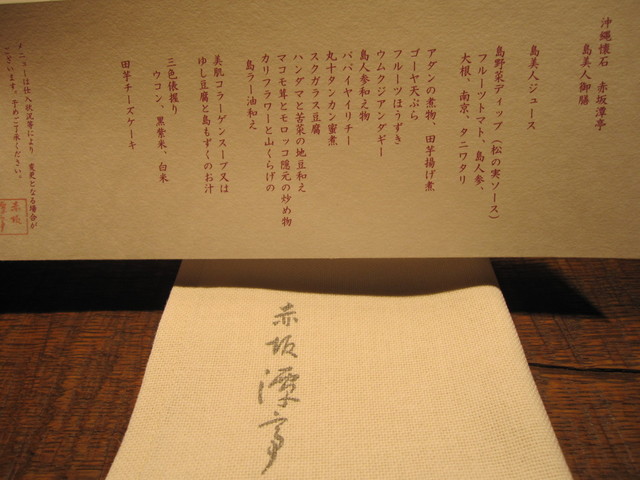 沖縄懐石　赤坂潭亭
島美人御膳
島美人ジュース
島野菜ディップ（松の実ソース）
フルーツトマト、島人参、
大根、南京、タニワタリ
アダンの煮物、田芋揚げ煮
ゴーヤ天ぷら
フルーツほうずき
ウムクジアンダギー
島人参和え物
パパイヤイリチー
丸十タンカン蜜煮
スクガラス豆腐
ハンダマと苦菜の地豆和え
マコモ茸とモロッコ隠元の炒め物
カリフラワーと山くらげの
島ラー油和え
美肌コラーゲンスープ又は
ゆし豆腐と島もずくのお汁
三色俵握り
ウコン、黒紫米、白米
田芋チーズケーキ
メニューは仕入状況等により、変更となる場合が
ございます。予めご了承ください。
赤坂潭亭
赤坂潭亭